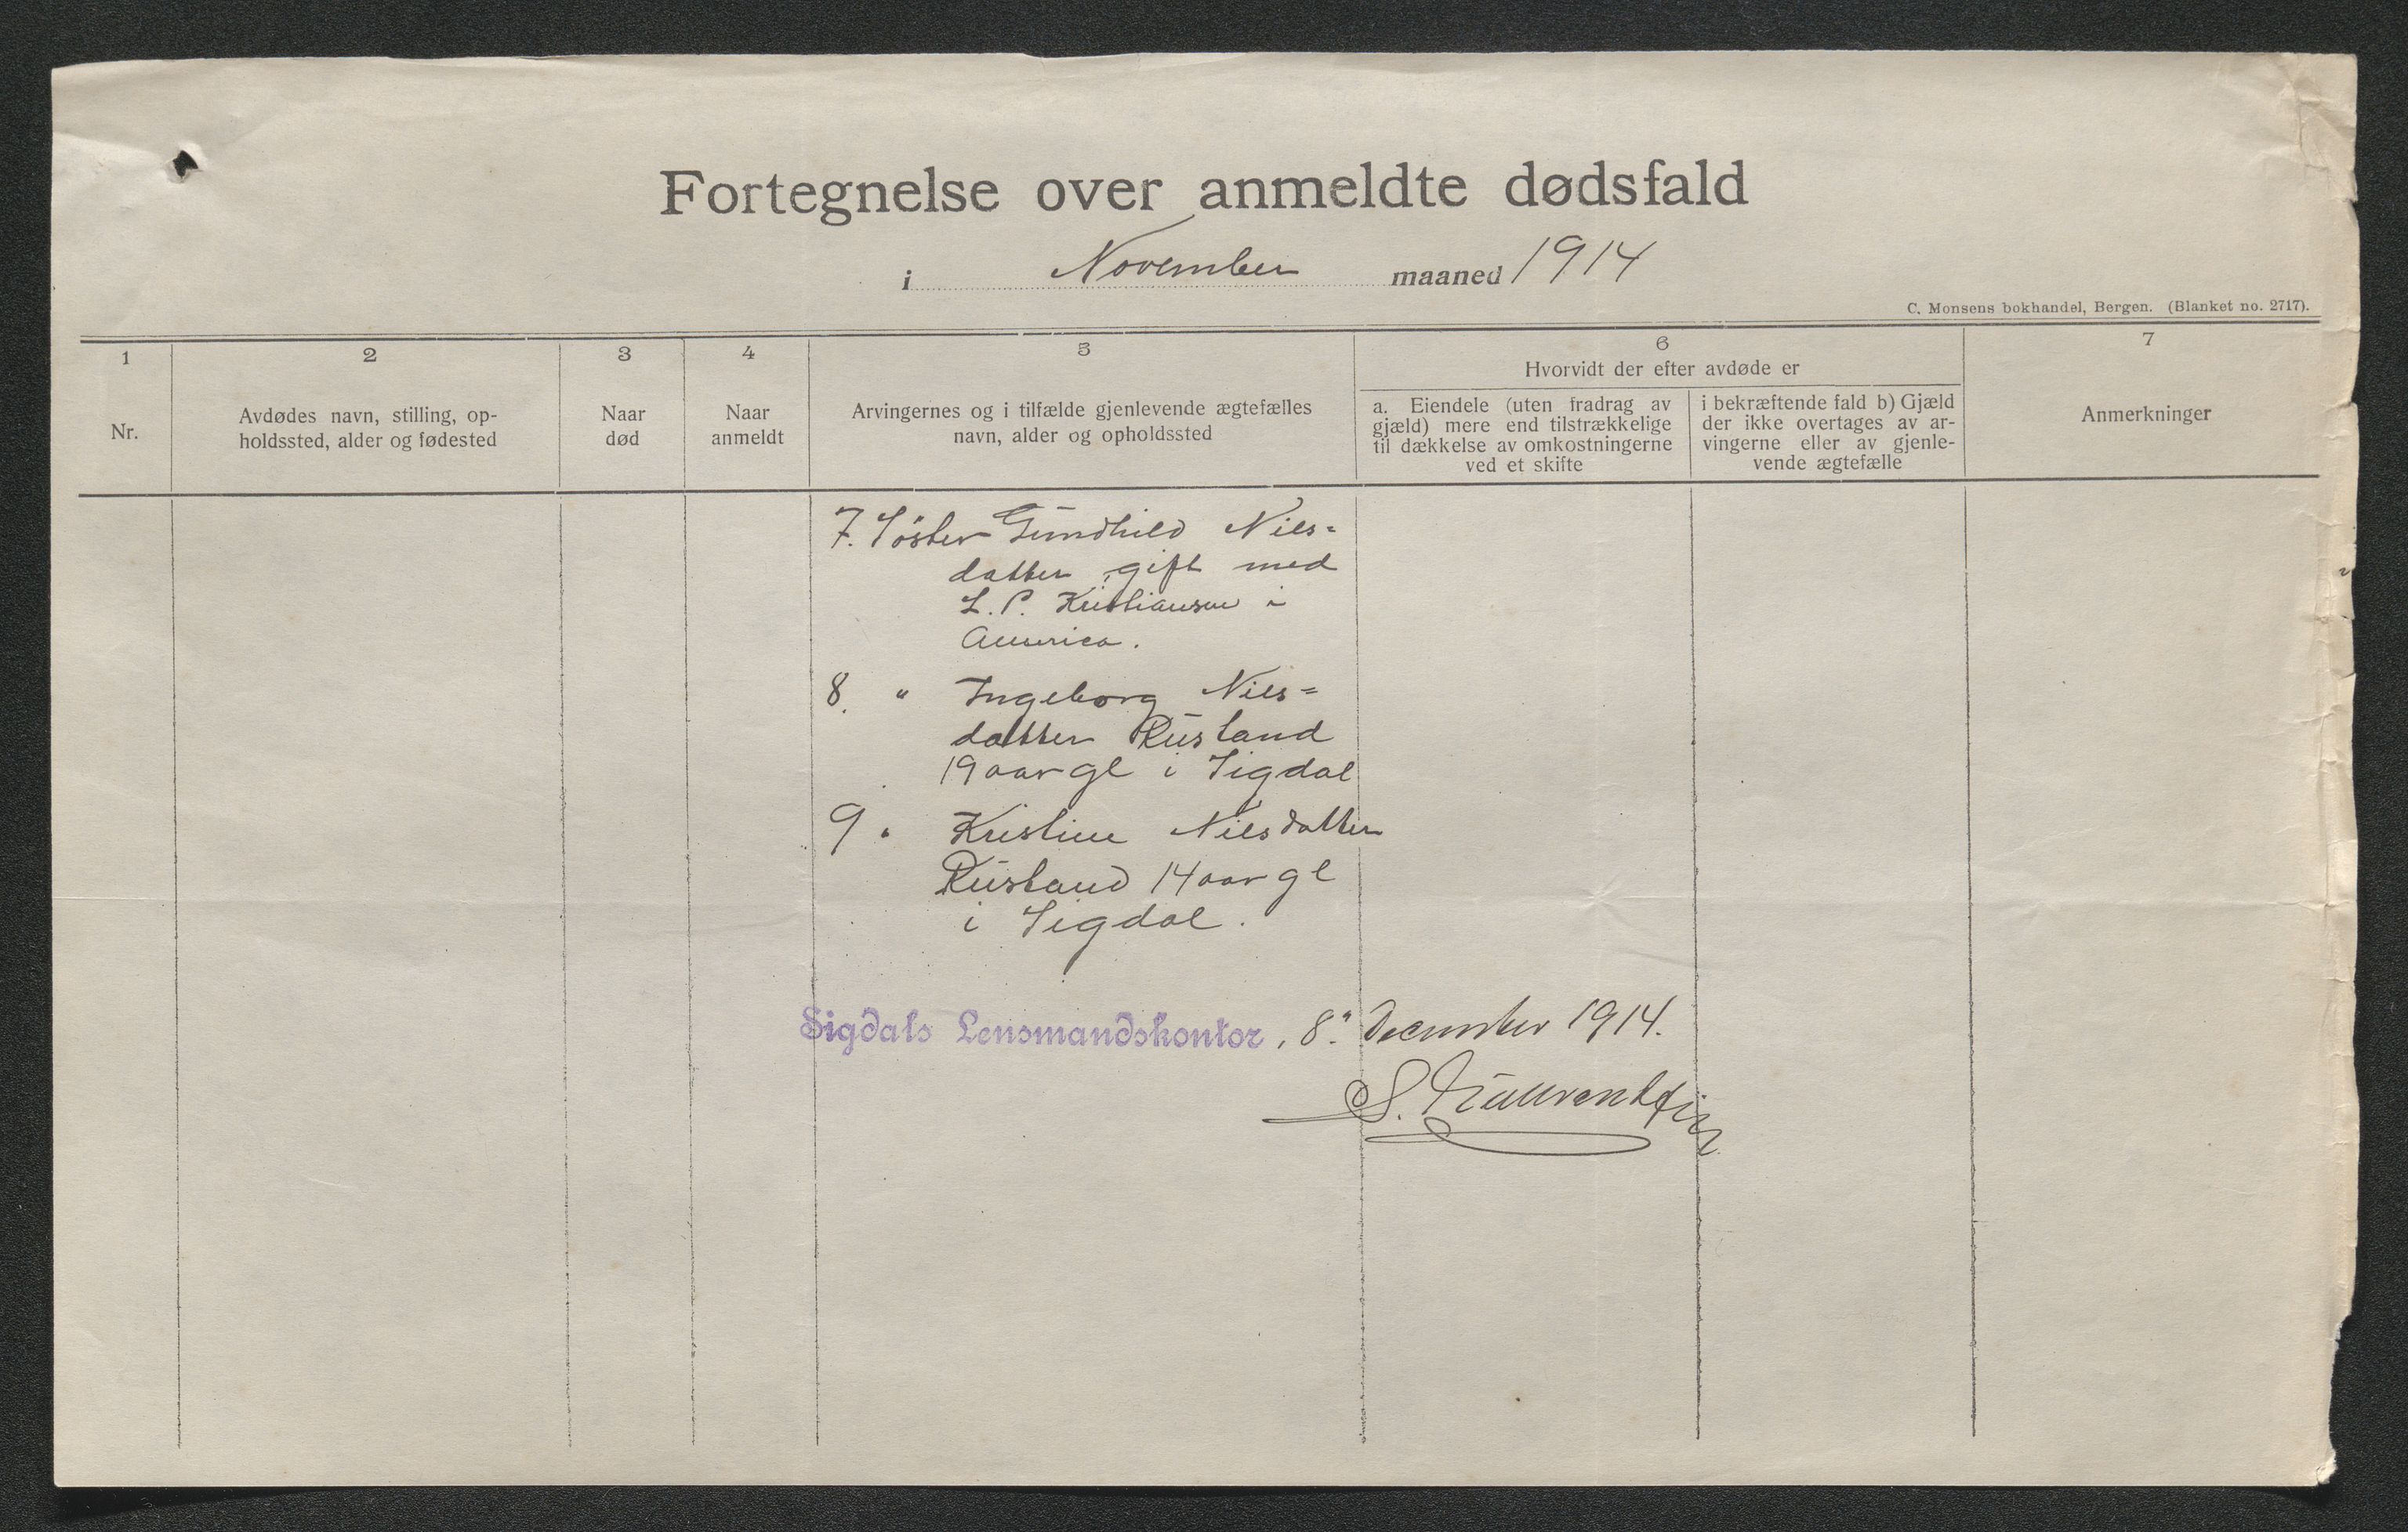 Fortegnelse over anmeldte dødsfald
i November maaned 1914
C. Monsens bokhandel, Bergen. (Blanket no. 2717).
1
Nr.
2
Avdødes navn, stilling, op-
holdssted, alder og fødested
3
Naar
død
4
Naar
anmeldt
5
Arvingernes og i tilfælde gjenlevende ægtefælles
navn, alder og opholdssted
6
Hvorvidt der efter avdøde er
a. Eiendele (uten fradrag av
gjæld) mere end tilstrækkelige
til dækkelse av omkostningerne
ved et skifte
i bekræftende fald b) Gjæld
der ikke overtages av ar-
vingerne eller av gjenle-
vende ægtefælle
7
Anmerkninger
7. Söster Gundhild Niels=
datter, gift med
L. P. Kristiansen i
America.
8. " Ingeborg Niels=
datter Rusland
19 aar gl i Sigdal
9. " Kristine Nielsdatter
Rusland 14 aar gl
i Sigdal.
Sigdals Lensmandskontor, 8. December 1914.
S.